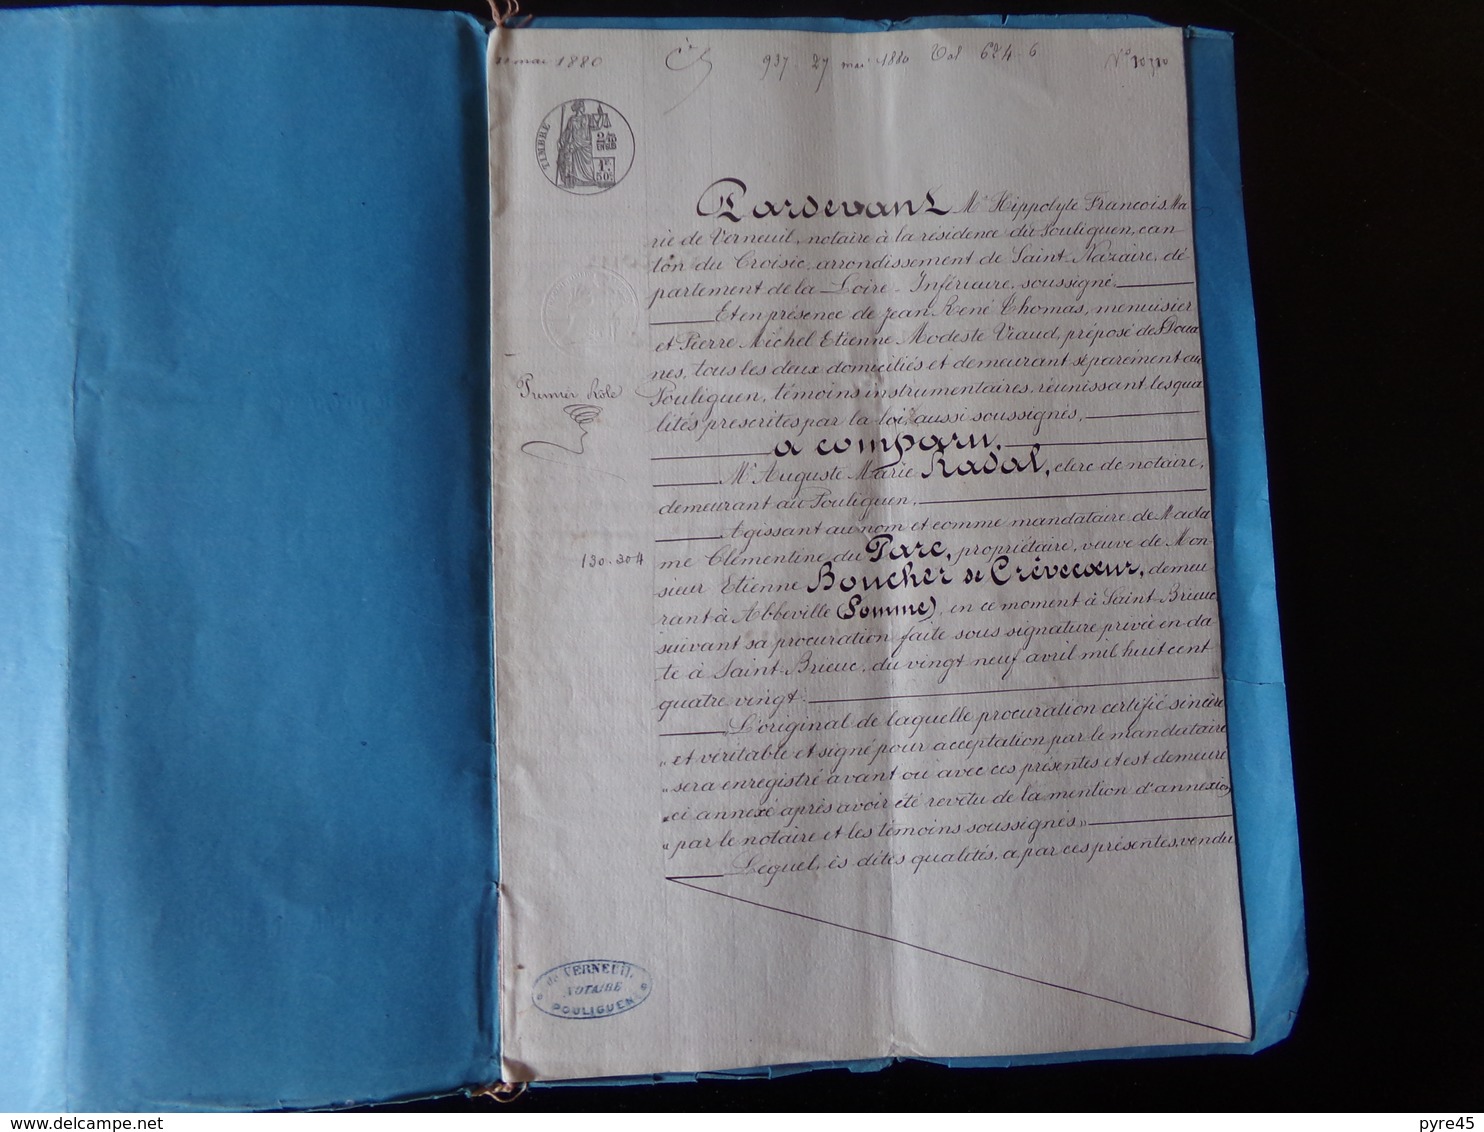 mai 1880
937 27 mai 1880 Vol 624 6
N° 10710
TIMBRE
1F
50c
Pardevant Me Hippolyte François Ma
rie de Verneuil, notaire à la résidence du Pouliguen, can
ton du Croisic, arrondissement de Saint-Nazaire, dé
partement de la Loire-Inférieure, soussigné.
Et en présence de Jean René Thomas, menuisier
et Pierre Michel Etienne Modeste Viaud, préposé des Doua
nes, tous les deux domiciliés et demeurant séparément au
Premier Rôle
Pouliguen, témoins instrumentaires, réunissant les qua
lités prescrites par la loi, aussi soussignés.
a comparu.
Mr Auguste Marie Radal, clerc de notaire,
demeurant au Pouliguen.
Agissant au nom et comme mandataire de Mada
130-304
me Clémentine du Parc, propriétaire, veuve de Mon
sieur Etienne Boucher de Crèvecœur, demeu
rant à Abbeville (Somme), en ce moment à Saint-Brieuc
suivant sa procuration faite sous signature privée en da
te à Saint-Brieuc, du vingt neuf avril mil huit cent
quatre vingt.
L'original de laquelle procuration certifié sincère
« et véritable et signé pour acceptation par le mandataire
« sera enregistré avant ou avec ces présentes et est demeuré
« ci annexé après avoir été revêtu de la mention d'annexion
« par le notaire et les témoins soussignés »
Lequel, ès dites qualités, a par ces présentes, vendu
de VERNEUIL
NOTAIRE
POULIGUEN
pyre45